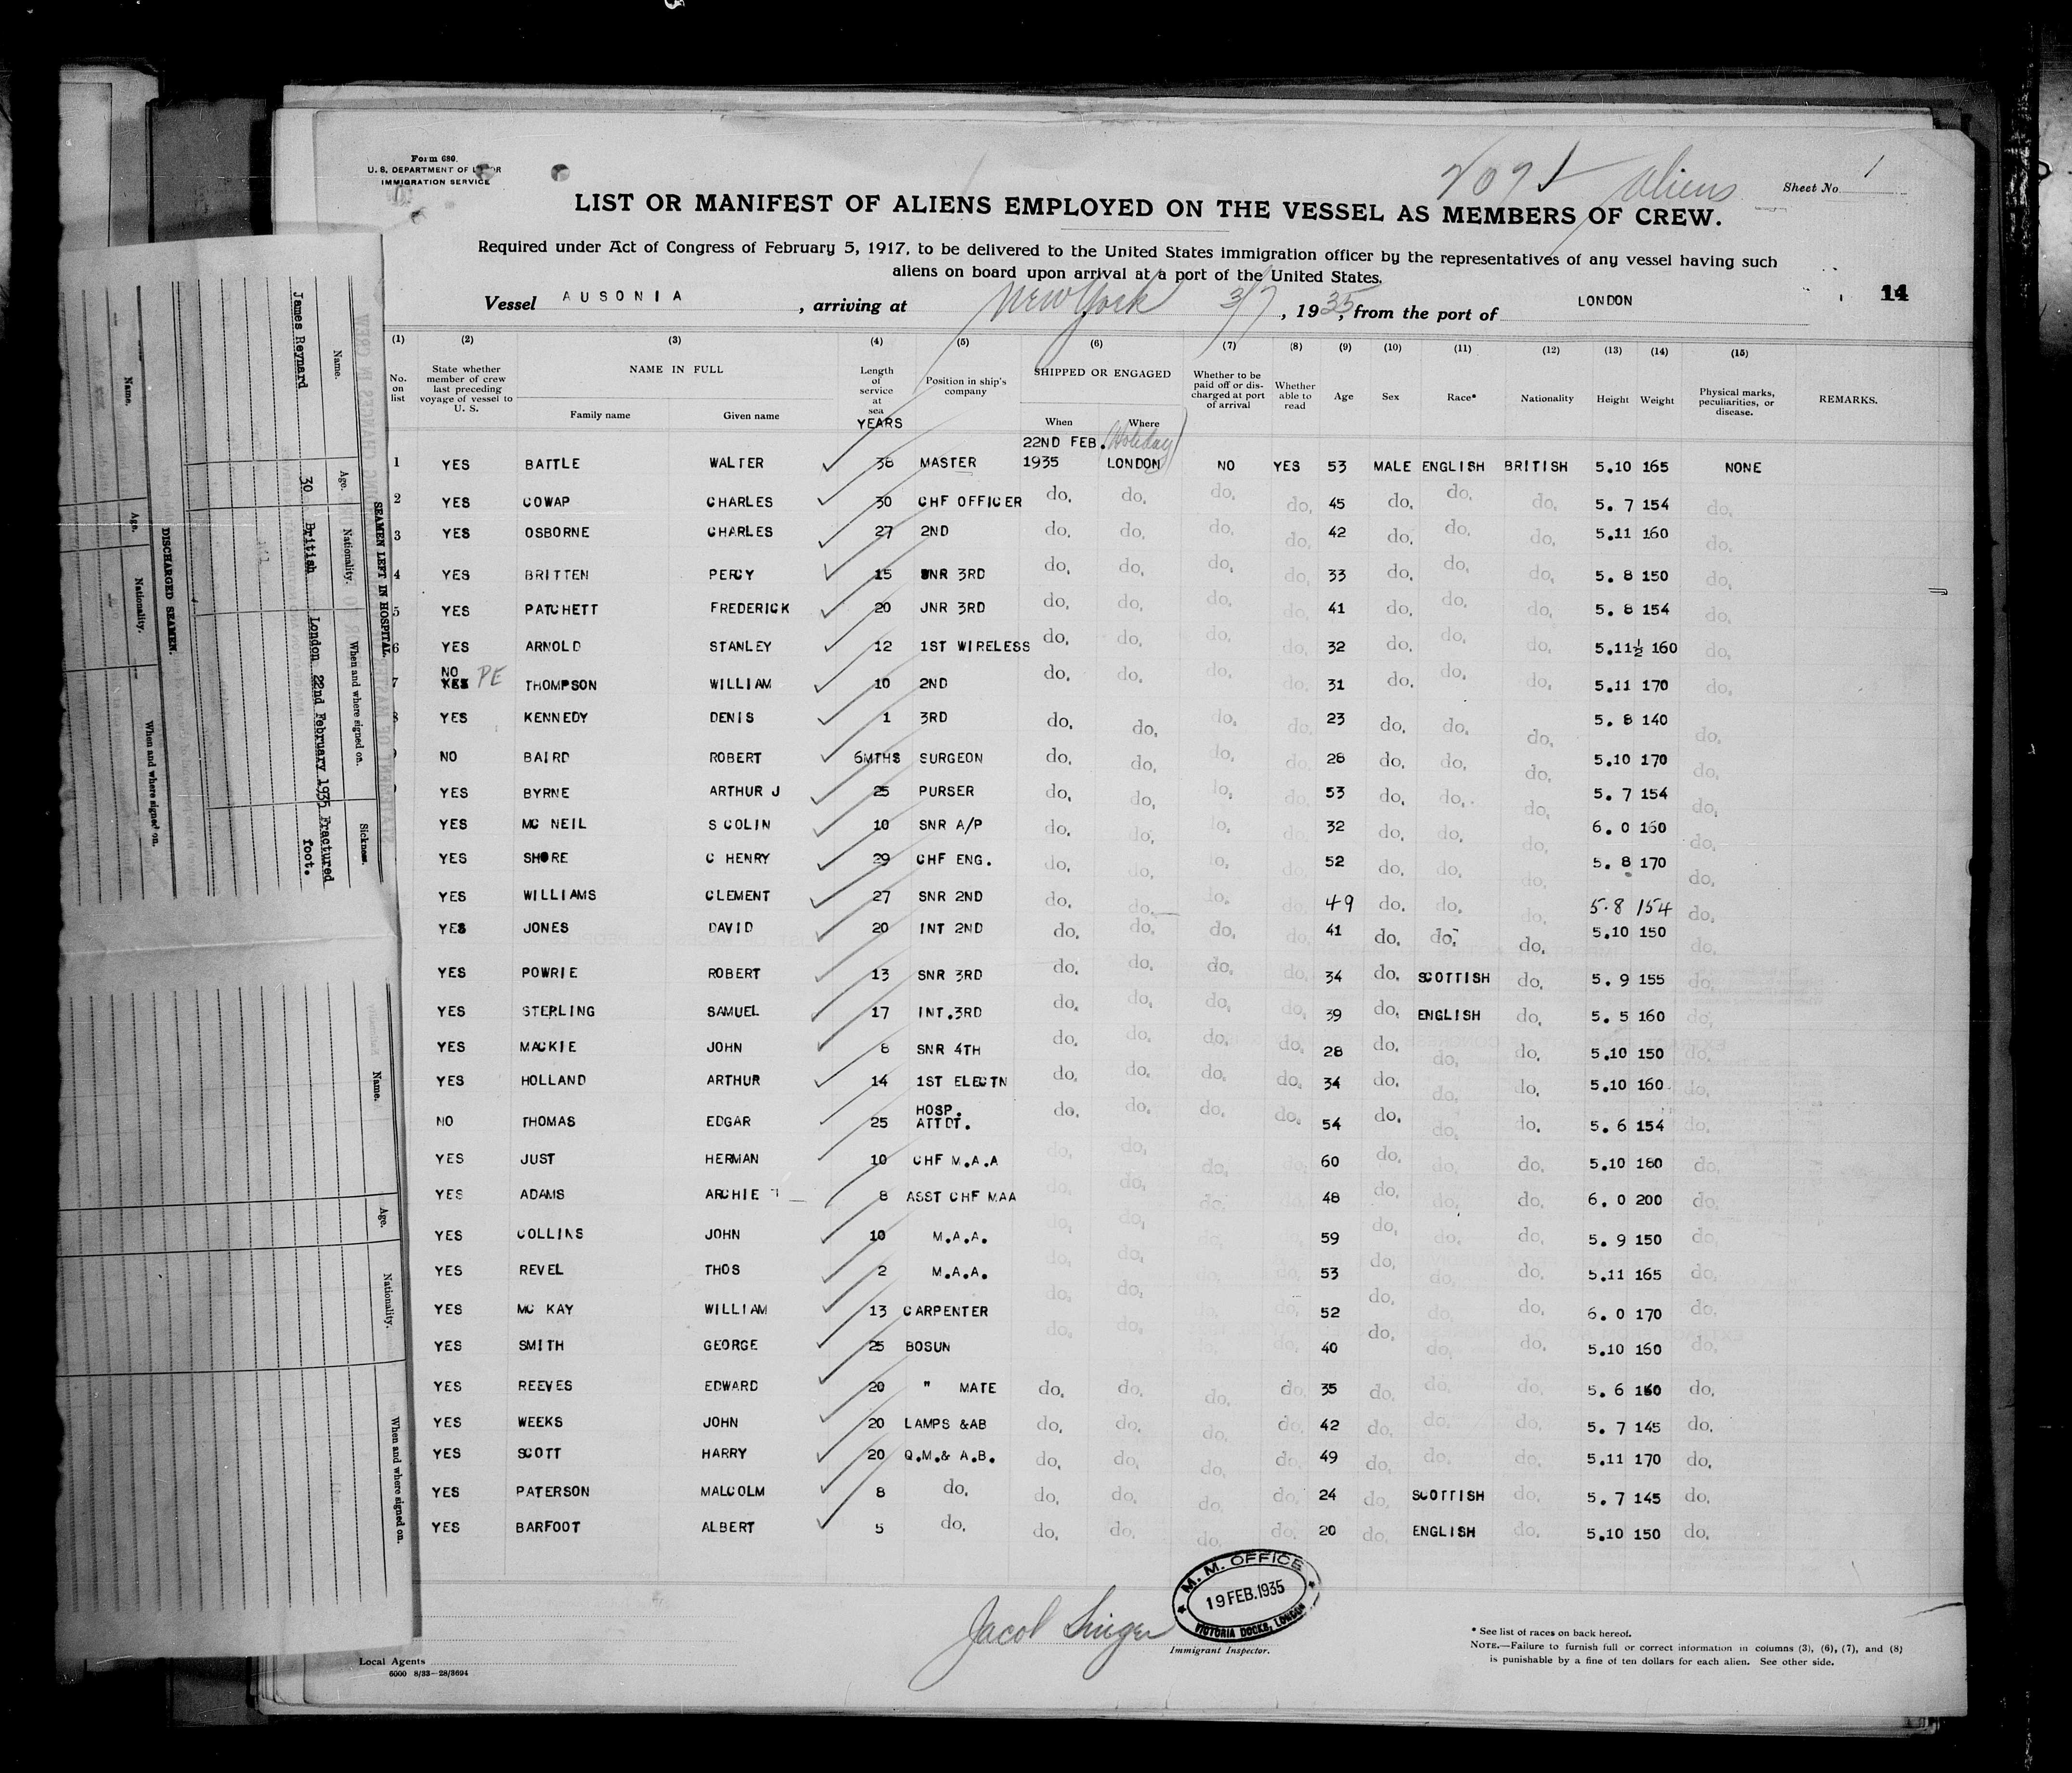 Form 680.
U. S. DEPARTMENT OF
IMMIGRATION SERVICE
Aliens
Sheet No. 1
LIST OR MANIFEST OF ALIENS EMPLOYED ON THE VESSEL AS MEMBERS OF CREW.
Required under Act of Congress of February 5, 1917, to be delivered to the United States immigration officer by the representatives of any vessel having such
aliens on board upon arrival at a port of the United States.
Vessel AUSONIA, arriving at New York 3/7, 1935, from the port of LONDON
14
(1) (2) (3) (4) (5) (6) (7) (8) (9) (10) (11) (12) (13) (14) (15)
No. on list State whether member of crew last preceding voyage of vessel to U. S. NAME IN FULL Family name Given name Length of service at sea YEARS Position in ship's company SHIPPED OR ENGAGED When Where Whether to be paid off or discharged at port of arrival Whether able to read Age Sex Race* Nationality Height Weight Physical marks, peculiarities, or disease. REMARKS.
22ND FEB. Holiday
1 YES BATTLE WALTER 38 MASTER 1935 LONDON NO YES 53 MALE ENGLISH BRITISH 5.10 165 NONE
2 YES COWAP CHARLES 30 CHF OFFICER do. do. do. do. 45 do. do. do. 5. 7 154 do.
3 YES OSBORNE CHARLES 27 2ND do. do. do. do. 42 do. do. do. 5.11 160 do.
4 YES BRITTEN PERCY 15 SNR 3RD do. do. do. do. 33 do. do. do. 5. 8 150 do.
5 YES PATCHETT FREDERICK 20 JNR 3RD do. do. do. do. 41 do. do. do. 5. 8 154 do.
6 YES ARNOLD STANLEY 12 1ST WIRELESS do. do. do. do. 32 do. do. do. 5.11½ 160 do.
NO
7 YES PE THOMPSON WILLIAM 10 2ND do. do. do. do. 31 do. do. do. 5.11 170 do.
8 YES KENNEDY DENIS 1 3RD do. do. do. do. 23 do. do. do. 5. 8 140 do.
NO BAIRD ROBERT 6MTHS SURGEON do. do. do. do. 28 do. do. do. 5.10 170 do.
YES BYRNE ARTHUR J 25 PURSER do. do. do. do. 53 do. do. do. 5. 7 154 do.
YES MC NEIL S COLIN 10 SNR A/P do. do. do. do. 32 do. do. do. 6. 0 160 do.
YES SHORE C HENRY 29 CHF ENG. do. do. do. do. 52 do. do. do. 5. 8 170 do.
YES WILLIAMS CLEMENT 27 SNR 2ND do. do. do. do. 49 do. do. do. 5.8 154 do.
YES JONES DAVID 20 INT 2ND do. do. do. do. 41 do. do. do. 5.10 150 do.
YES POWRIE ROBERT 13 SNR 3RD do. do. do. do. 34 do. SCOTTISH do. 5. 9 155 do.
YES STERLING SAMUEL 17 INT.3RD do. do. do. do. 39 do. ENGLISH do. 5. 5 160 do.
YES MACKIE JOHN 8 SNR 4TH do. do. do. do. 28 do. do. do. 5.10 150 do.
YES HOLLAND ARTHUR 14 1ST ELECTN do. do. do. do. 34 do. do. do. 5.10 160 do.
NO THOMAS EDGAR 25 HOSP. ATTDT. do. do. do. do. 54 do. do. do. 5. 6 154 do.
YES JUST HERMAN 10 CHF M.A.A do. do. do. do. 60 do. do. do. 5.10 180 do.
YES ADAMS ARCHIE 8 ASST CHF MAA do. do. do. do. 48 do. do. do. 6. 0 200 do.
YES COLLINS JOHN 10 M.A.A. do. do. do. do. 59 do. do. do. 5. 9 150 do.
YES REVEL THOS 2 M.A.A. do. do. do. do. 53 do. do. do. 5.11 165 do.
YES MC KAY WILLIAM 13 CARPENTER do. do. do. do. 52 do. do. do. 6. 0 170 do.
YES SMITH GEORGE 25 BOSUN do. do. do. do. 40 do. do. do. 5.10 160 do.
YES REEVES EDWARD 20 " MATE do. do. do. do. 35 do. do. do. 5. 6 160 do.
YES WEEKS JOHN 20 LAMPS &AB do. do. do. do. 42 do. do. do. 5. 7 145 do.
YES SCOTT HARRY 20 Q.M.& A.B. do. do. do. do. 49 do. do. do. 5.11 170 do.
YES PATERSON MALCOLM 8 do. do. do. do. do. 24 do. SCOTTISH do. 5. 7 145 do.
YES BARFOOT ALBERT 5 do. do. do. do. do. 20 do. ENGLISH do. 5.10 150 do.
M. M. OFFICE
19 FEB. 1935
VICTORIA DOCKS, LONDON
Jacob Singer
Immigrant Inspector.
Local Agents
6000 8/33—28/3694
* See list of races on back hereof.
NOTE.—Failure to furnish full or correct information in columns (3), (6), (7), and (8)
is punishable by a fine of ten dollars for each alien. See other side.
SEAMEN LEFT IN HOSPITAL.
Name. Age. Nationality. When and where signed on. Sickness.
James Reynard 30 British London 22nd February 1935 Fractured
foot.
DISCHARGED SEAMEN.
Name. Age. Nationality. When and where signed on.
Name. Age. Nationality. When and where signed on.